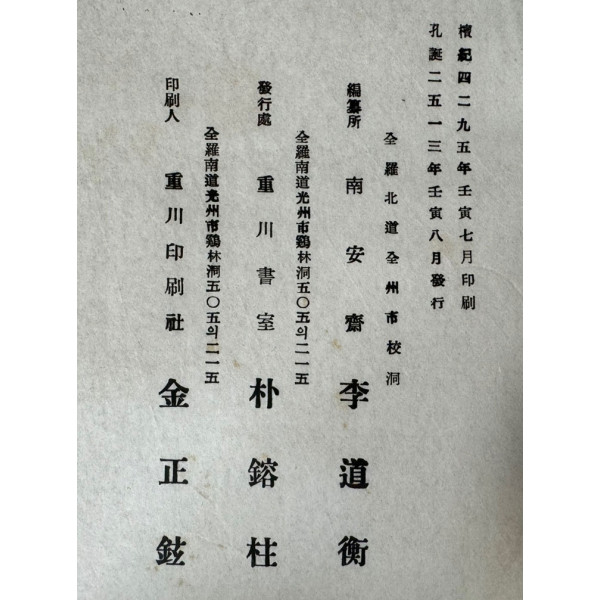 檀紀四二九五年壬寅七月印刷
孔誕二五一三年壬寅八月發行
全羅北道全州市校洞
編纂所 南安齋 李道衡
全羅南道光州市鷄林洞五〇五의二一五
發行處 重川書室 朴鎔柱
全羅南道光州市鷄林洞五〇五의二一五
印刷人 重川印刷社 金正鉉